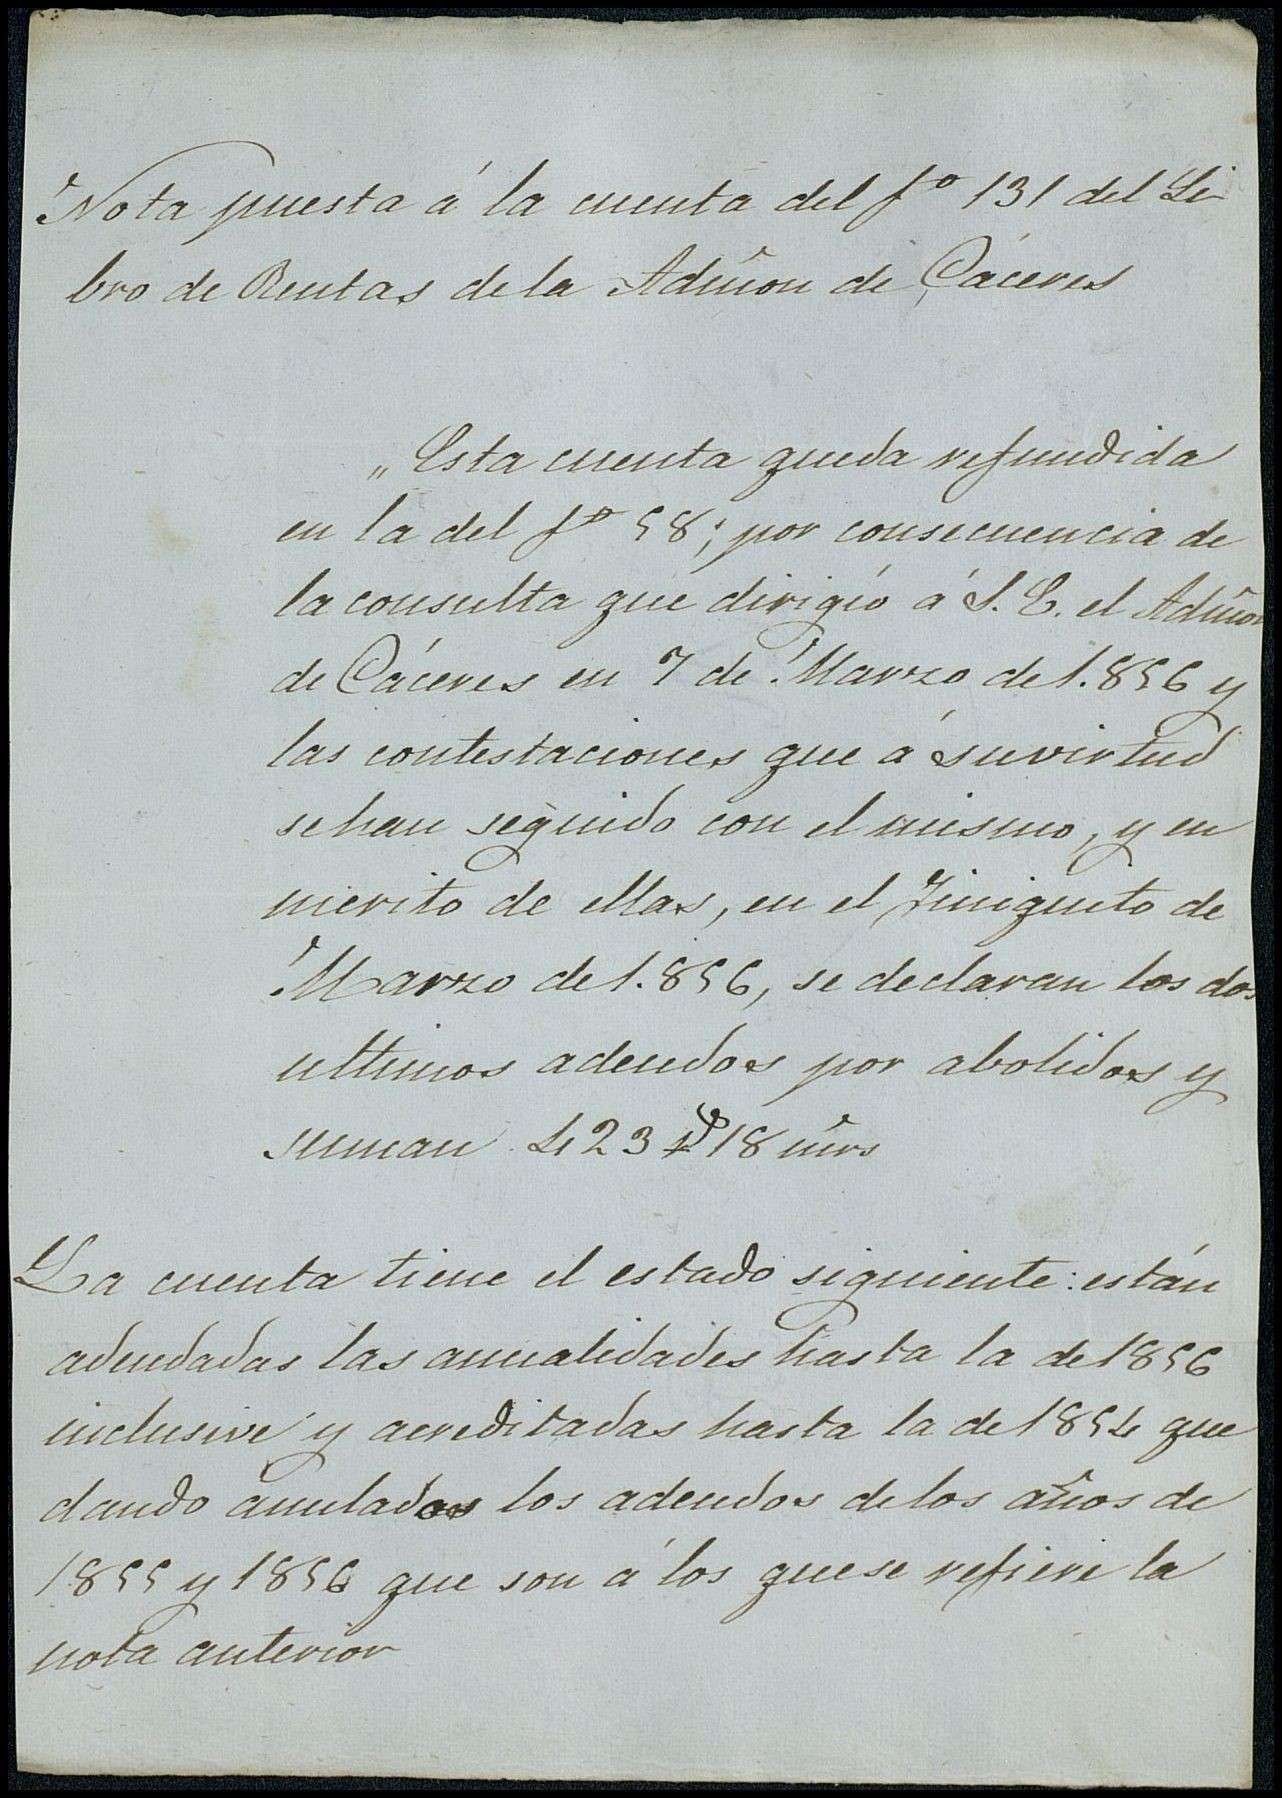 Nota puesta á la cuenta del fº 131 del Li-
bro de Rentas de la Admon̄ de Cáceres
„Esta cuenta queda refundida
en la del fº 58; por consecuencia de
la consulta que dirigió á S. E. el Admor̄
de Cáceres en 7 de Marzo de 1.856 y
las contestaciones que á su virtud
se han seguido con el mismo, y en
merito de ellas, en el finiquito de
Marzo de 1.856, se declaran los dos
ultimos adeudos por abolidos y
suman 423 18 mrs̄
La cuenta tiene el estado siguiente: están
adeudadas las anualidades hasta la de 1856
inclusive y acreditadas hasta la de 1854 que
dando anulados los adeudos de los años de
1855 y 1856 que son á los que se refiere la
nota anterior